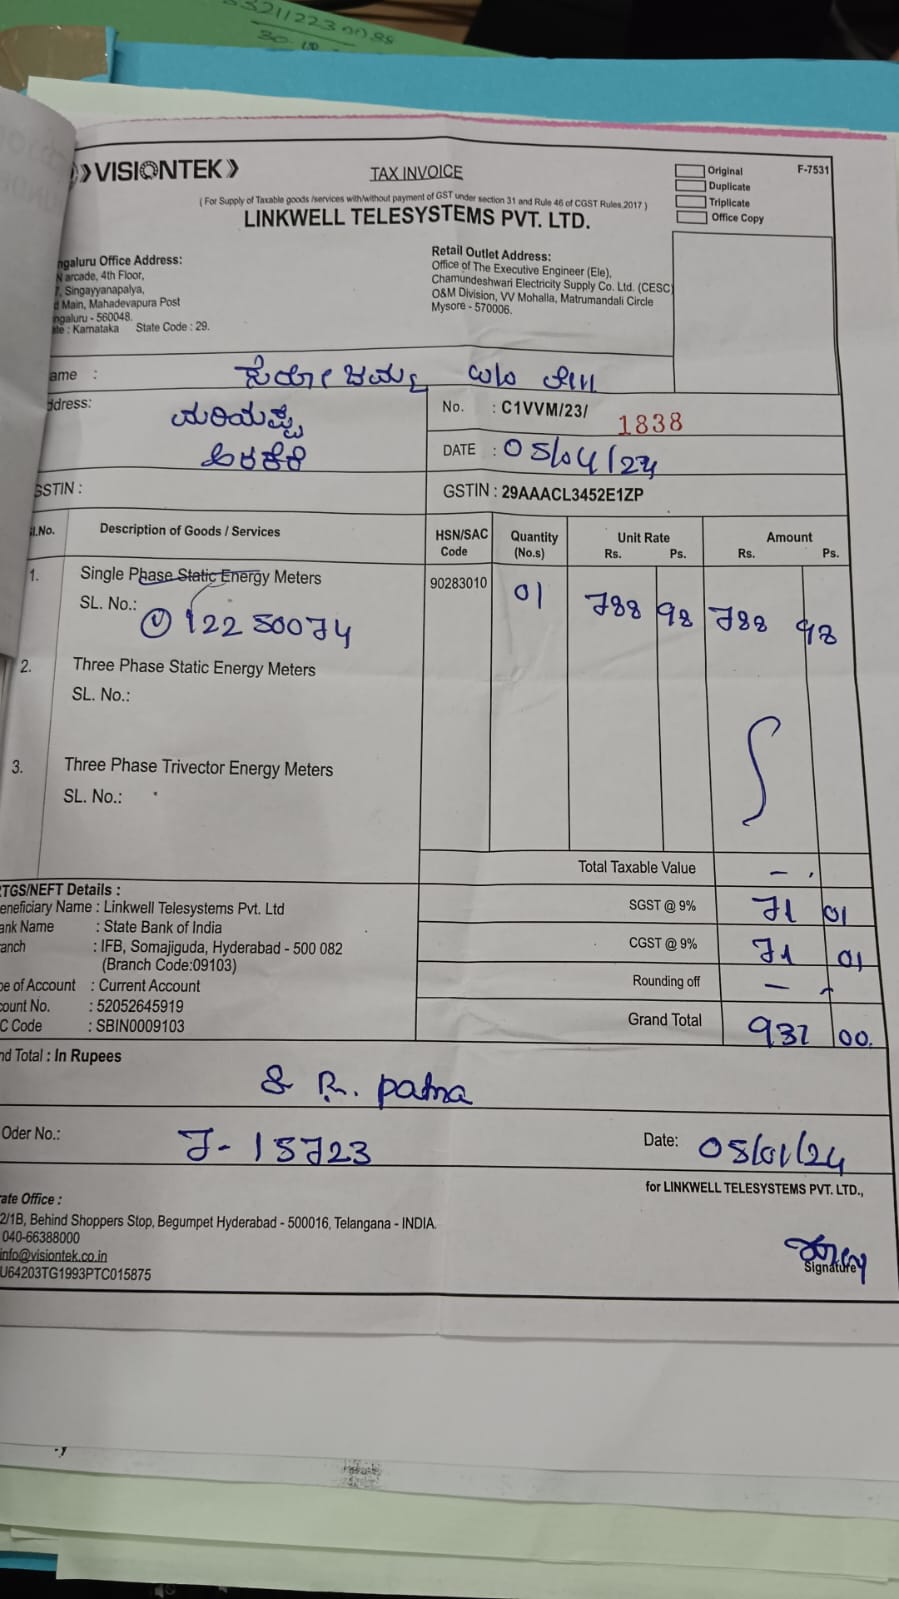 30.
VISIONTEK
TAX INVOICE
Original
F-7531
Duplicate
Triplicate
Office Copy
( For Supply of Taxable goods /services with/without payment of GST under section 31 and Rule 46 of CGST Rules,2017 )
LINKWELL TELESYSTEMS PVT. LTD.
ngaluru Office Address:
arcade, 4th Floor,
Singayyanapalya,
Main, Mahadevapura Post
ngaluru - 560048.
Karnataka State Code : 29.
Retail Outlet Address:
Office of The Executive Engineer (Ele),
Chamundeshwari Electricity Supply Co. Ltd. (CESC)
O&M Division, VV Mohalla, Matrumandali Circle
Mysore - 570006.
ame :
ddress:
ಮರಿಯಪ್ಪ
No. : C1VVM/23/ 1838
DATE : 05/04/24
GSTIN : 
GSTIN : 29AAACL3452E1ZP
Sl.No. Description of Goods / Services HSN/SAC Code Quantity (No.s) Unit Rate Rs. Ps. Amount Rs. Ps.
1. Single Phase Static Energy Meters 90283010 01 788 98 788 98
SL. No.: 12250074
2. Three Phase Static Energy Meters
SL. No.:
3. Three Phase Trivector Energy Meters
SL. No.:
Total Taxable Value -
RTGS/NEFT Details :
eneficiary Name : Linkwell Telesystems Pvt. Ltd
SGST @ 9% 71 01
ank Name : State Bank of India
ranch : IFB, Somajiguda, Hyderabad - 500 082
CGST @ 9% 71 01
(Branch Code:09103)
pe of Account : Current Account
Rounding off -
count No. : 52052645919
C Code : SBIN0009103
Grand Total 931 00.
nd Total : In Rupees
Oder No.: J-15723
Date: 05/01/24
for LINKWELL TELESYSTEMS PVT. LTD.,
rate Office :
2/1B, Behind Shoppers Stop, Begumpet Hyderabad - 500016, Telangana - INDIA.
040-66388000
info@visiontek.co.in
U64203TG1993PTC015875
Signature